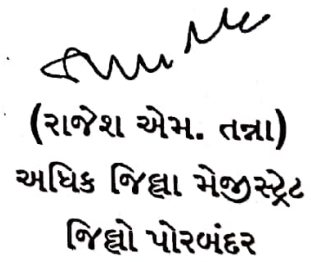 (રાજેશ એમ. તન્ના)
અધિક જિલ્લા મેજીસ્ટ્રેટ
જિલ્લો પોરબંદર